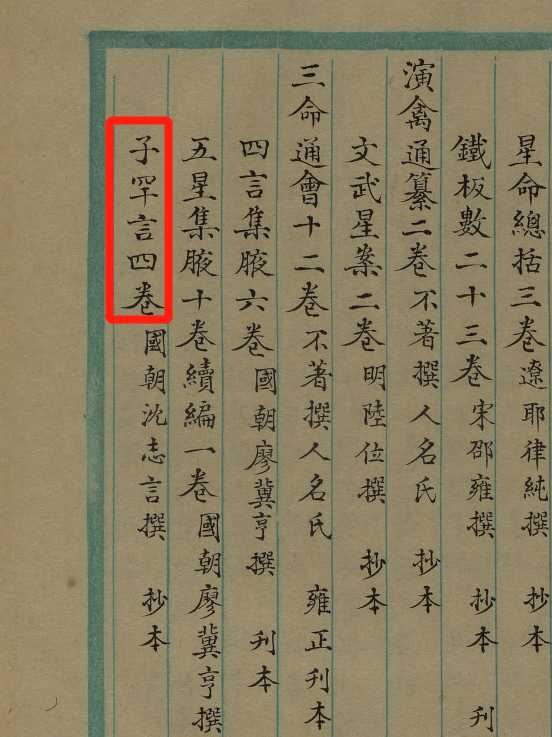 星命總括三卷遼耶律純撰 抄本
鐵板數二十三卷宋邵雍撰 抄本 刋
演禽通纂二卷不著撰人名氏 抄本
文武星案二卷明陸位撰 抄本
三命通會十二卷不著撰人名氏 雍正刋本
四言集腋六卷國朝廖冀亨撰 刋本
五星集腋十卷續編一卷國朝廖冀亨撰
子罕言四卷國朝沈志言撰 抄本